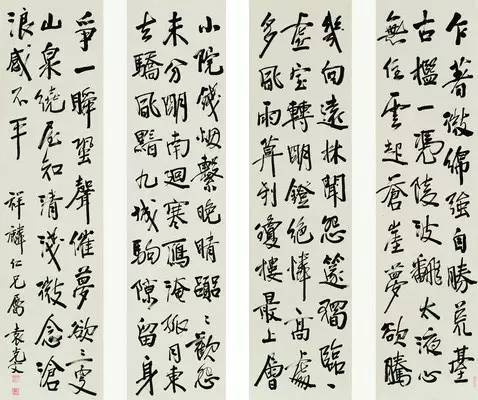 乍著微綿強自勝荒臺
古檻一憑陵波翻太液心
無住雲起蒼崖夢欲騰
幾向遠林聞怨篴獨臨
虛室轉明鐙絕憐高處
多風雨算到瓊樓最上層
小院 晚晴囂囂歡怨
未分明南迴寒鴈淹孤月東
去驕風黯九城駒隙留身
爭一瞬蛩聲催夢欲三更
山泉繞屋知清淺微念滄
浪感不平
祥麟仁兄屬 袁克文